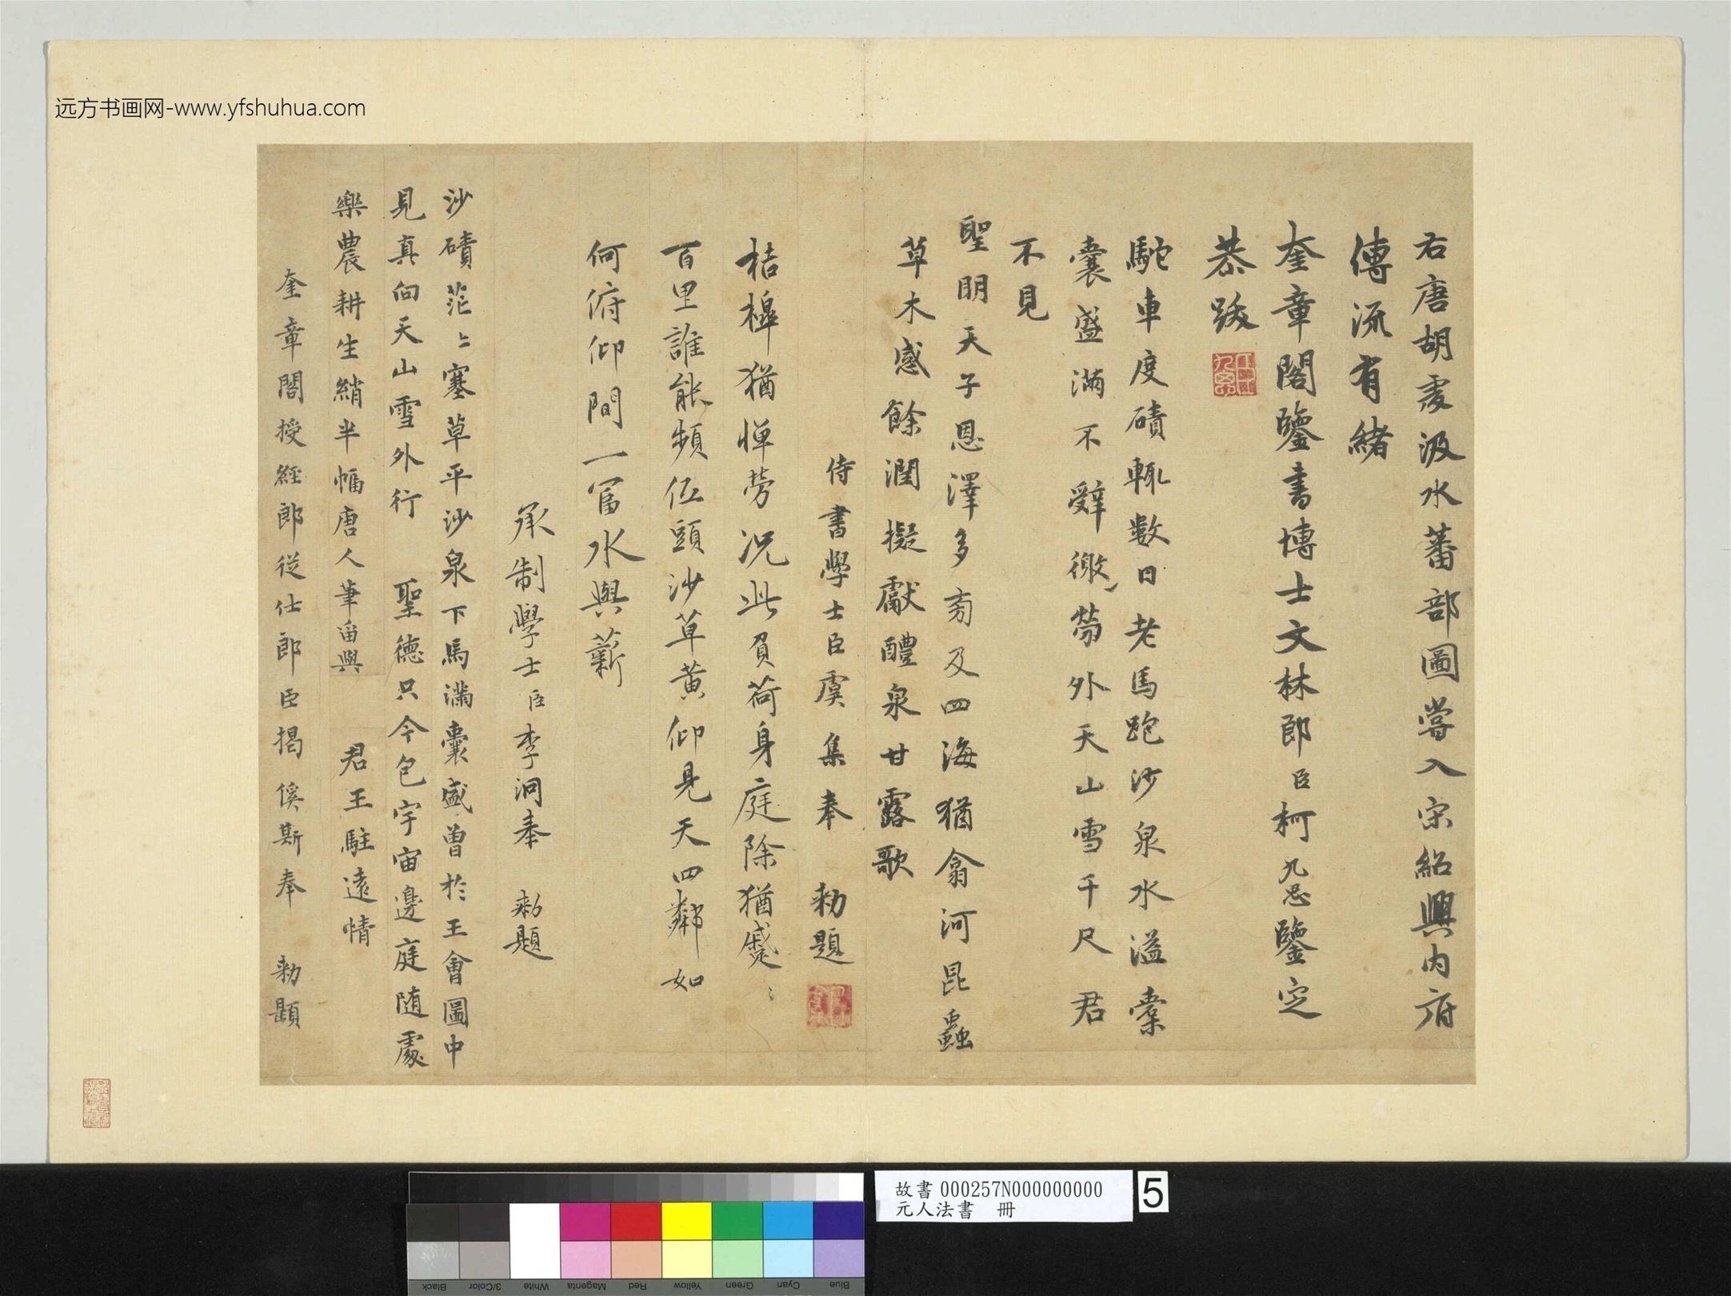 远方书画网-www.yfshuhua.com
右唐胡虔汲水蕃部圖嘗入宋紹興內府
傳流有緒
奎章閣鑒書博士文林郎臣柯九思鑒定
恭跋
駝車度磧輒數日老馬跑沙泉水溢橐
囊盛滿不辭徼勞外天山雪千尺君
不見
聖明天子恩澤多旁及四海猶翕河昆蟲
草木感餘潤擬獻醴泉甘露歌
侍書學士臣虞集奉 勑題
桔槔猶憚勞況此負荷身庭除猶蹙〻
百里誰能頻伍頭沙草黃仰見天四鄰如
何俯仰間一冨水與薪
承制學士臣李泂奉 勑題
沙磧茫〻塞草平沙泉下馬滿囊盛曾於王會圖中
見真向天山雪外行 聖德只今包宇宙邊庭隨處
樂農耕生綃半幅唐人筆留與 君王駐遠情
奎章閣授經郎從仕郎臣揭傒斯奉 勑題
故書 000257N000000000
元人法書 冊
5
Black
3/Color
White
Magenta
Red
Yellow
Green
Cyan
Blue